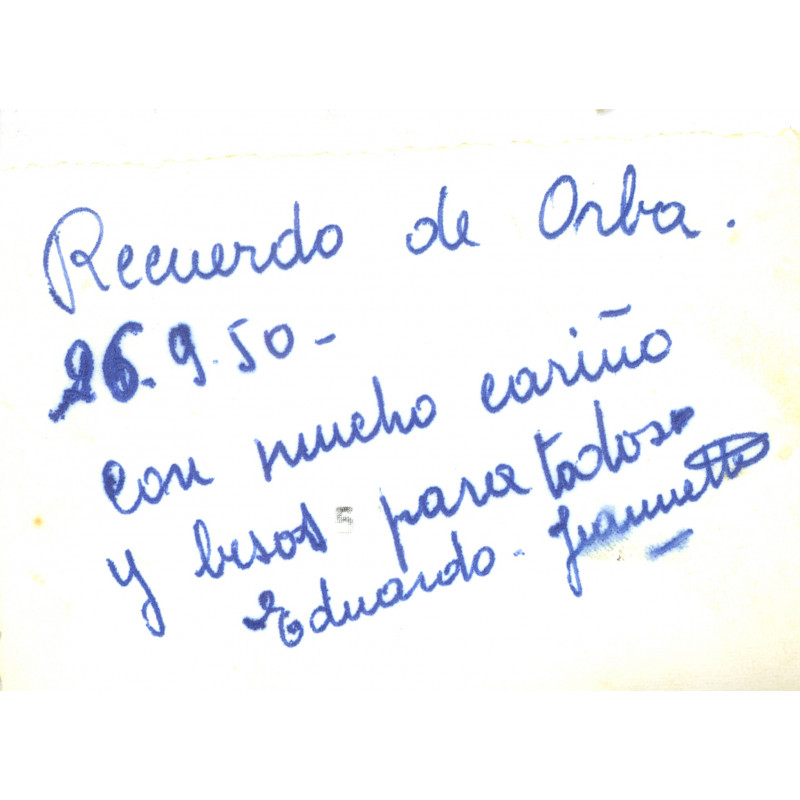 Recuerdo de Orba.
26.9.50-
con mucho cariño
y besos para todos.
Eduardo - Jeannette
5